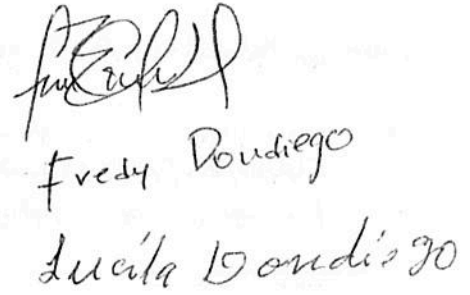 Fredy Dondiego
Lucila Dondiego